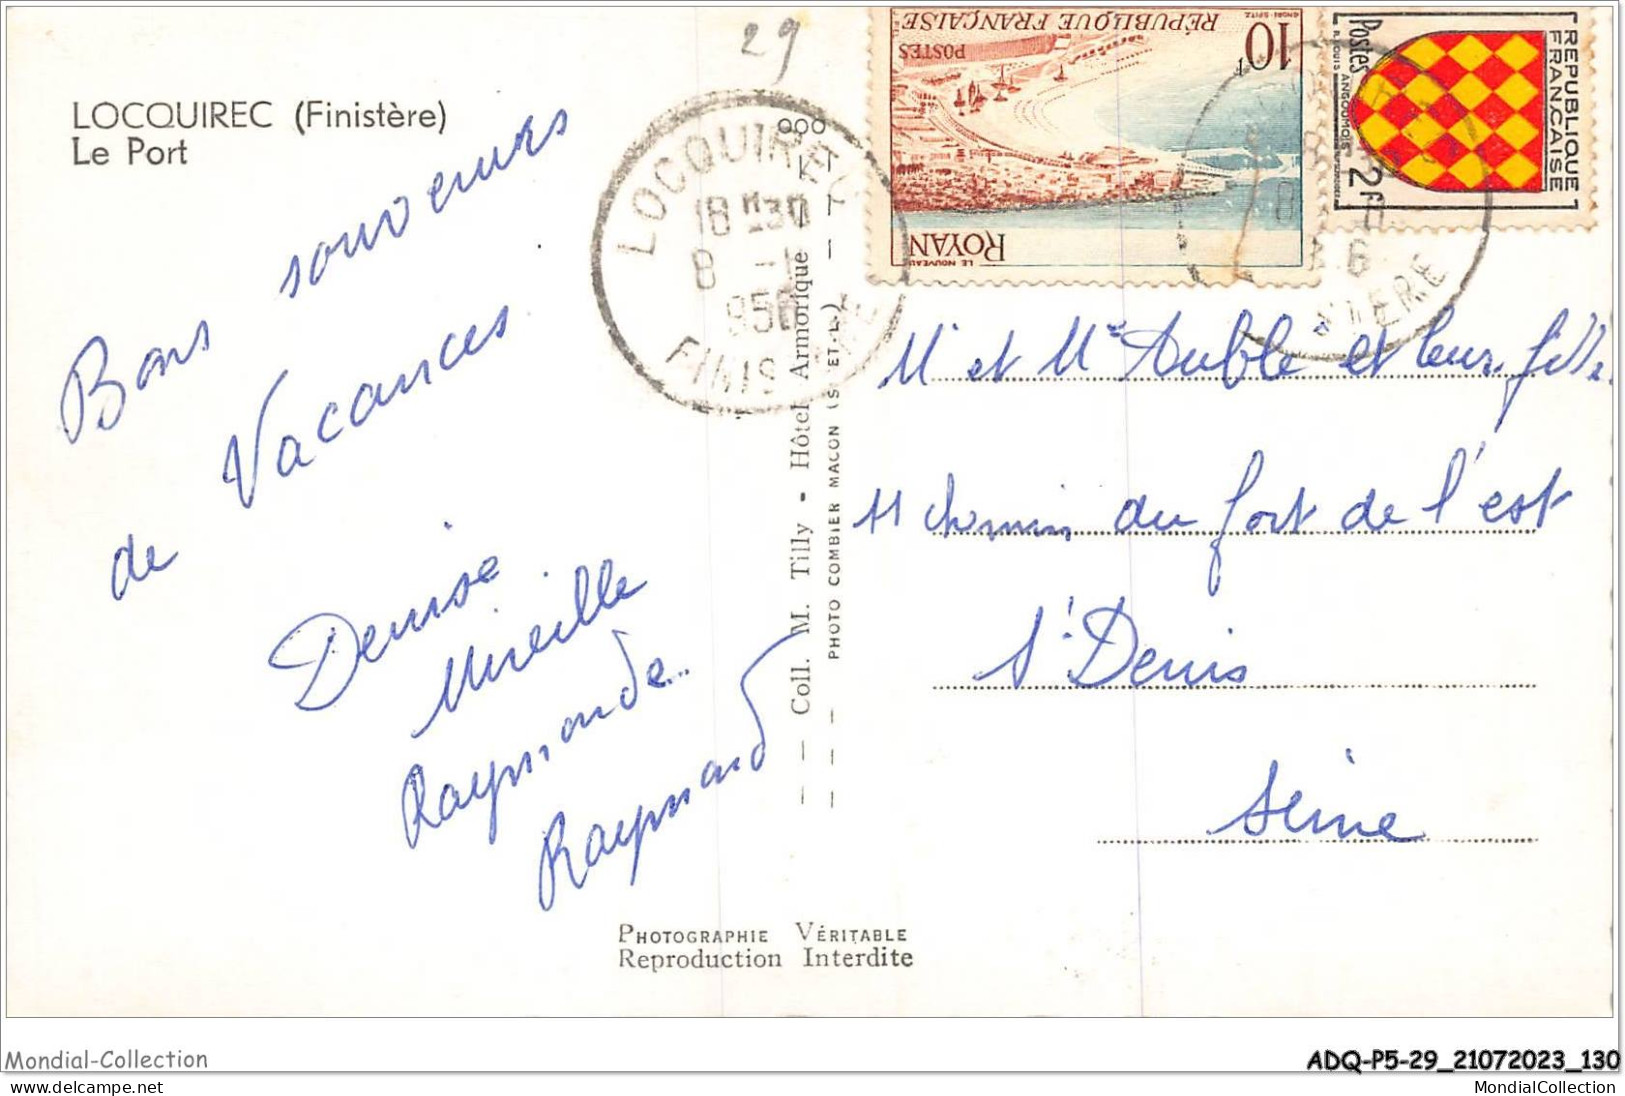 29
LOCQUIREC (Finistère)
Le Port
Bons souvenirs
de Vacances
Denise
Mireille
Raymonde
Raymond
LOCQUIREC
18 H 30
8 -
1956
FINISTERE
RÉPUBLIQUE FRANÇAISE
POSTES
10F
LE NOUVEAU
ROYAN
REPUBLIQUE
FRANCAISE
Postes
ANGOUMOIS
2F
6
STERE
Coll. M. Tilly - Hôtel Armorique
PHOTO COMBIER MACON (S. ET-L.)
M et Me Auble et leur fille
11 chemin du fort de l'est
St Denis
Seine
PHOTOGRAPHIE VÉRITABLE
Reproduction Interdite
Mondial-Collection
ADQ-P5-29_21072023_130
delcampe.net
MondialCollection